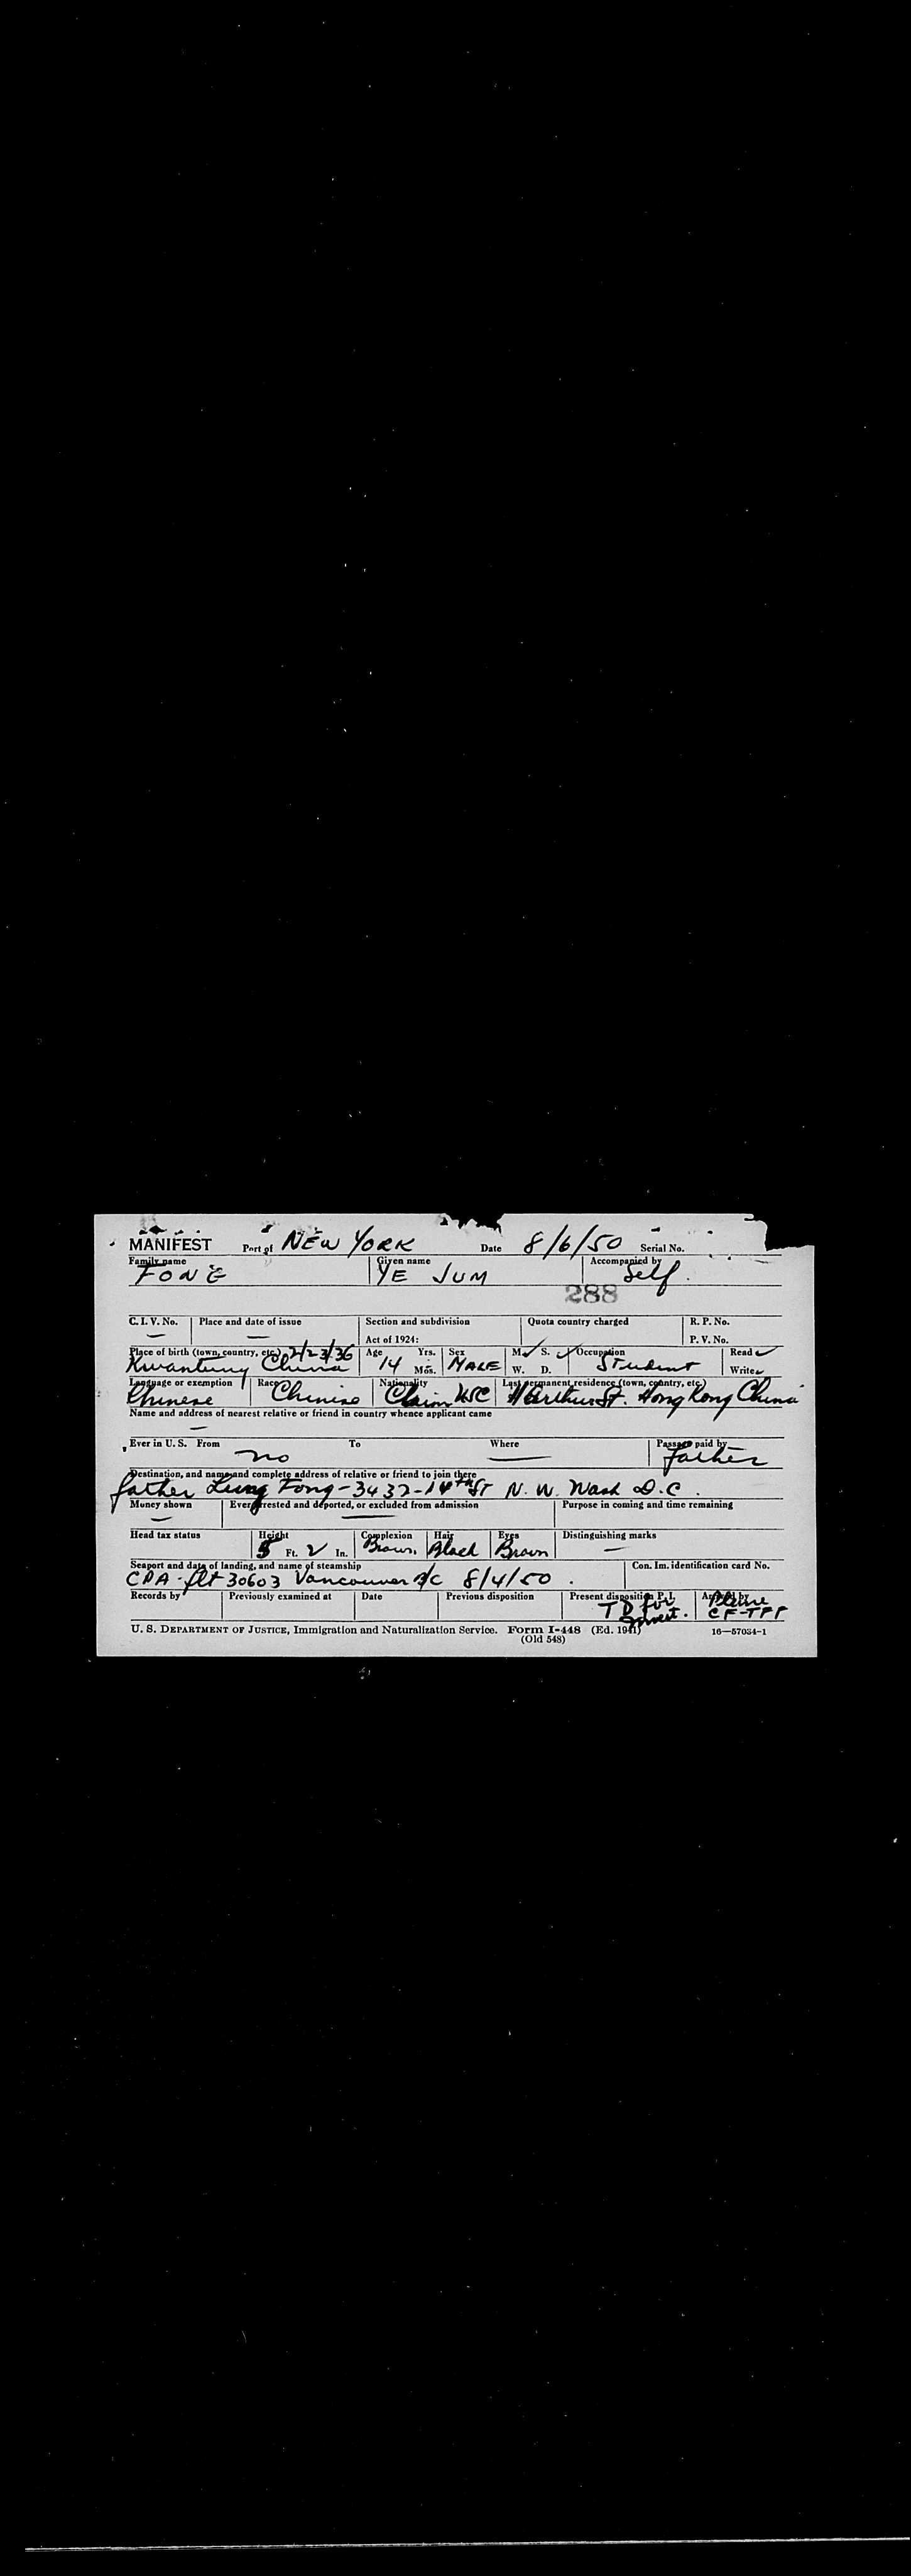 MANIFEST Port of NEW YORK Date 8/6/50 Serial No.
Family name Given name Accompanied by
FONG YE JUM Self
288
C. I. V. No. Place and date of issue Section and subdivision Quota country charged R. P. No.
— — Act of 1924: P. V. No.
Place of birth (town, country, etc.) 2/23/36 Age Yrs. Sex M. ✓ S. ✓ Occupation Read ✓
Kwantung China 14 Mos. MALE W. D. Student Write ✓
Language or exemption Race Nationality Last permanent residence (town, country, etc.)
Chinese Chinese Claim USC St. Hong Kong China
Name and address of nearest relative or friend in country whence applicant came
—
Ever in U. S. From To Where Passage paid by
no — Father
Destination, and name and complete address of relative or friend to join there
father Lung Fong - 3432 - 14th St N. W. Wash D.C.
Money shown Ever arrested and deported, or excluded from admission Purpose in coming and time remaining
— —
Head tax status Height Complexion Hair Eyes Distinguishing marks
5 Ft. 2 In. Brown Black Brown —
Seaport and date of landing, and name of steamship Con. Im. identification card No.
CPA - flt 30603 Vancouver B/C 8/4/50.
Records by Previously examined at Date Previous disposition Present disposition P.I. by
TD for CF-TPP
U. S. DEPARTMENT OF JUSTICE, Immigration and Naturalization Service. Form I-448 (Ed. 1941) 16—57034-1
(Old 548)